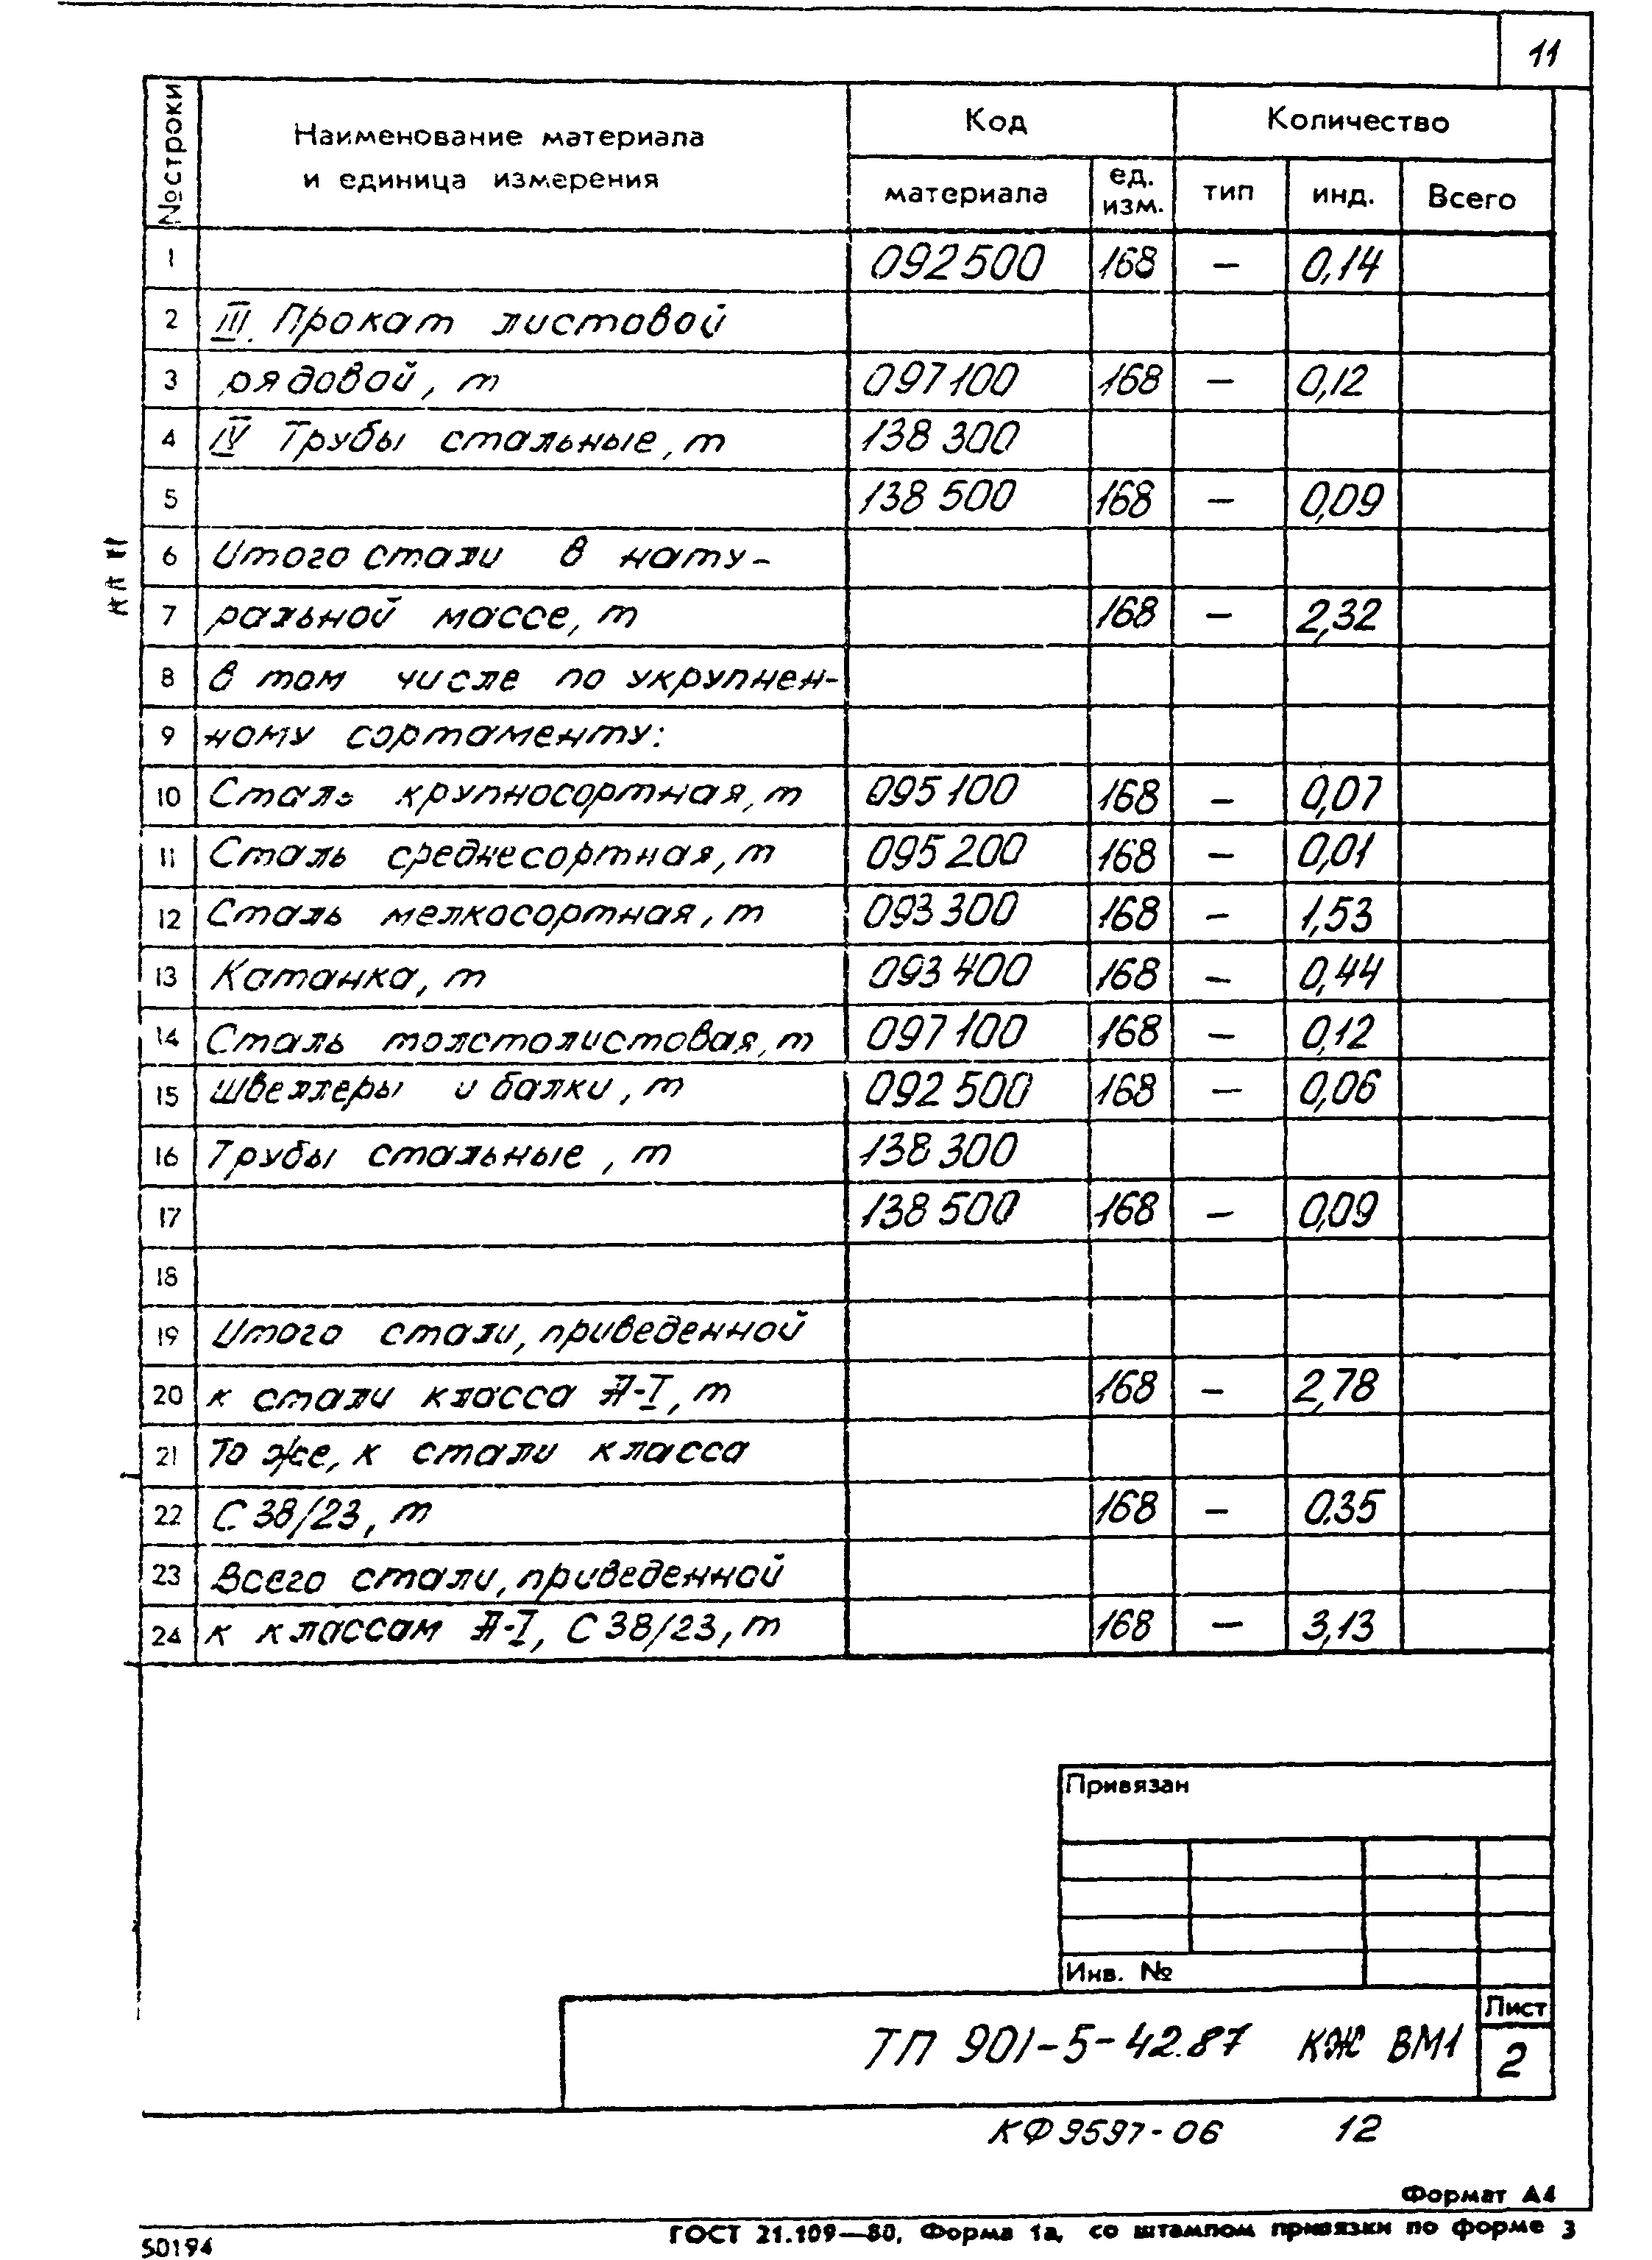 11
№ строки Наименование материала и единица измерения Код Количество
материала ед. изм. тип инд. Всего
1 092500 168 – 0,14
2 III. Прокат листовой
3 рядовой, т 097100 168 – 0,12
4 IV Трубы стальные, т 138300
5 138500 168 – 0,09
6 Итого стали в нату-
7 ральной массе, т 168 – 2,32
8 в том числе по укрупнен-
9 ному сортаменту:
10 Сталь крупносортная, т 095100 168 – 0,07
11 Сталь среднесортная, т 095200 168 – 0,01
12 Сталь мелкосортная, т 093300 168 – 1,53
13 Катанка, т 093400 168 – 0,44
14 Сталь толстолистовая, т 097100 168 – 0,12
15 швеллеры и балки, т 092500 168 – 0,06
16 Трубы стальные, т 138300
17 138500 168 – 0,09
18
19 Итого стали, приведенной
20 к стали класса А-I, т 168 – 2,78
21 То же, к стали класса
22 С 38/23, т 168 – 0.35
23 Всего стали, приведенной
24 к классам А-I, С 38/23, т 168 – 3,13
Привязан
Инв. №
ТП 901-5-42.87 КЖ ВМ1
Лист
2
КФ 9597-06 12
Формат А4
50194 ГОСТ 21.109—80, Форма 1а, со штампом привязки по форме 3